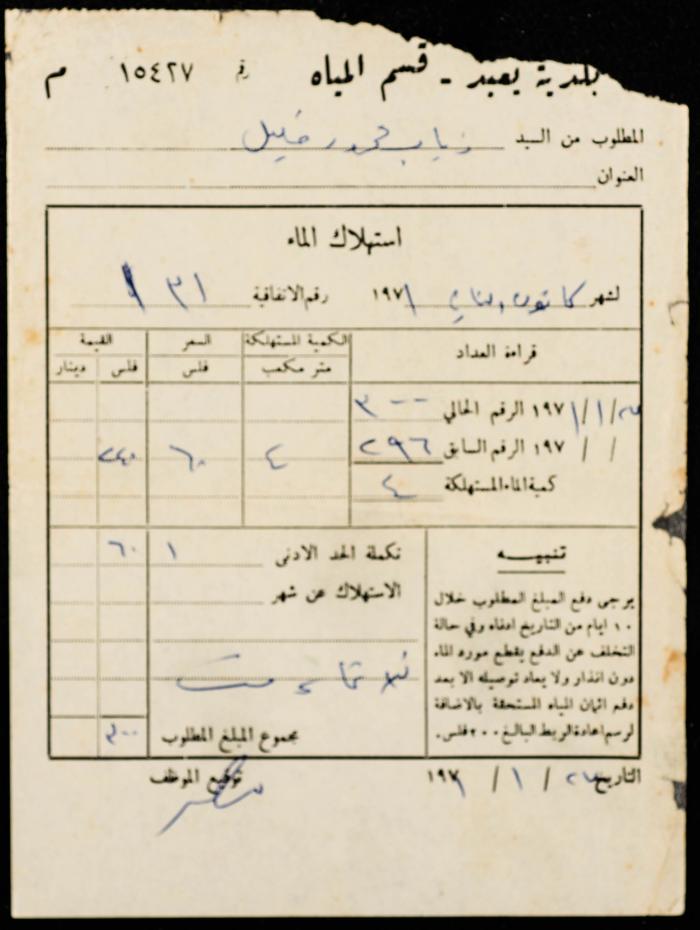 بلدية يعبد - قسم المياه رقم ١٥٤٢٧ م
المطلوب من السيد ذياب محمود خليل
العنوان
استهلاك الماء
لشهر كانون ثاني ١٩٧١ رقم الاتفاقية ٣١
قراءة العداد الكمية المستهلكة السعر القيمة
متر مكعب فلس فلس دينار
/١/١٩٧١ الرقم الحالي ٣٠٠
/ / ١٩٧ الرقم السابق ٢٩٦ ٤ ٦٠ ٢٤٠
كمية الماء المستهلكة ٤
تنبيه
يرجى دفع المبلغ المطلوب خلال
١٠ ايام من التاريخ ادناه وفي حالة
التخلف عن الدفع يقطع مورد الماء
دون انذار ولا يعاد توصيله الا بعد
دفع اثمان المياه المستحقة بالاضافة
لرسم اعادة الربط البالغ ٢٠٠ فلس.
تكملة الحد الادنى ١ ٦٠
الاستهلاك عن شهر
ثلاثمائة فلس
مجموع المبلغ المطلوب ٣٠٠
التاريخ / ١ / ١٩٧١ توقيع الموظف